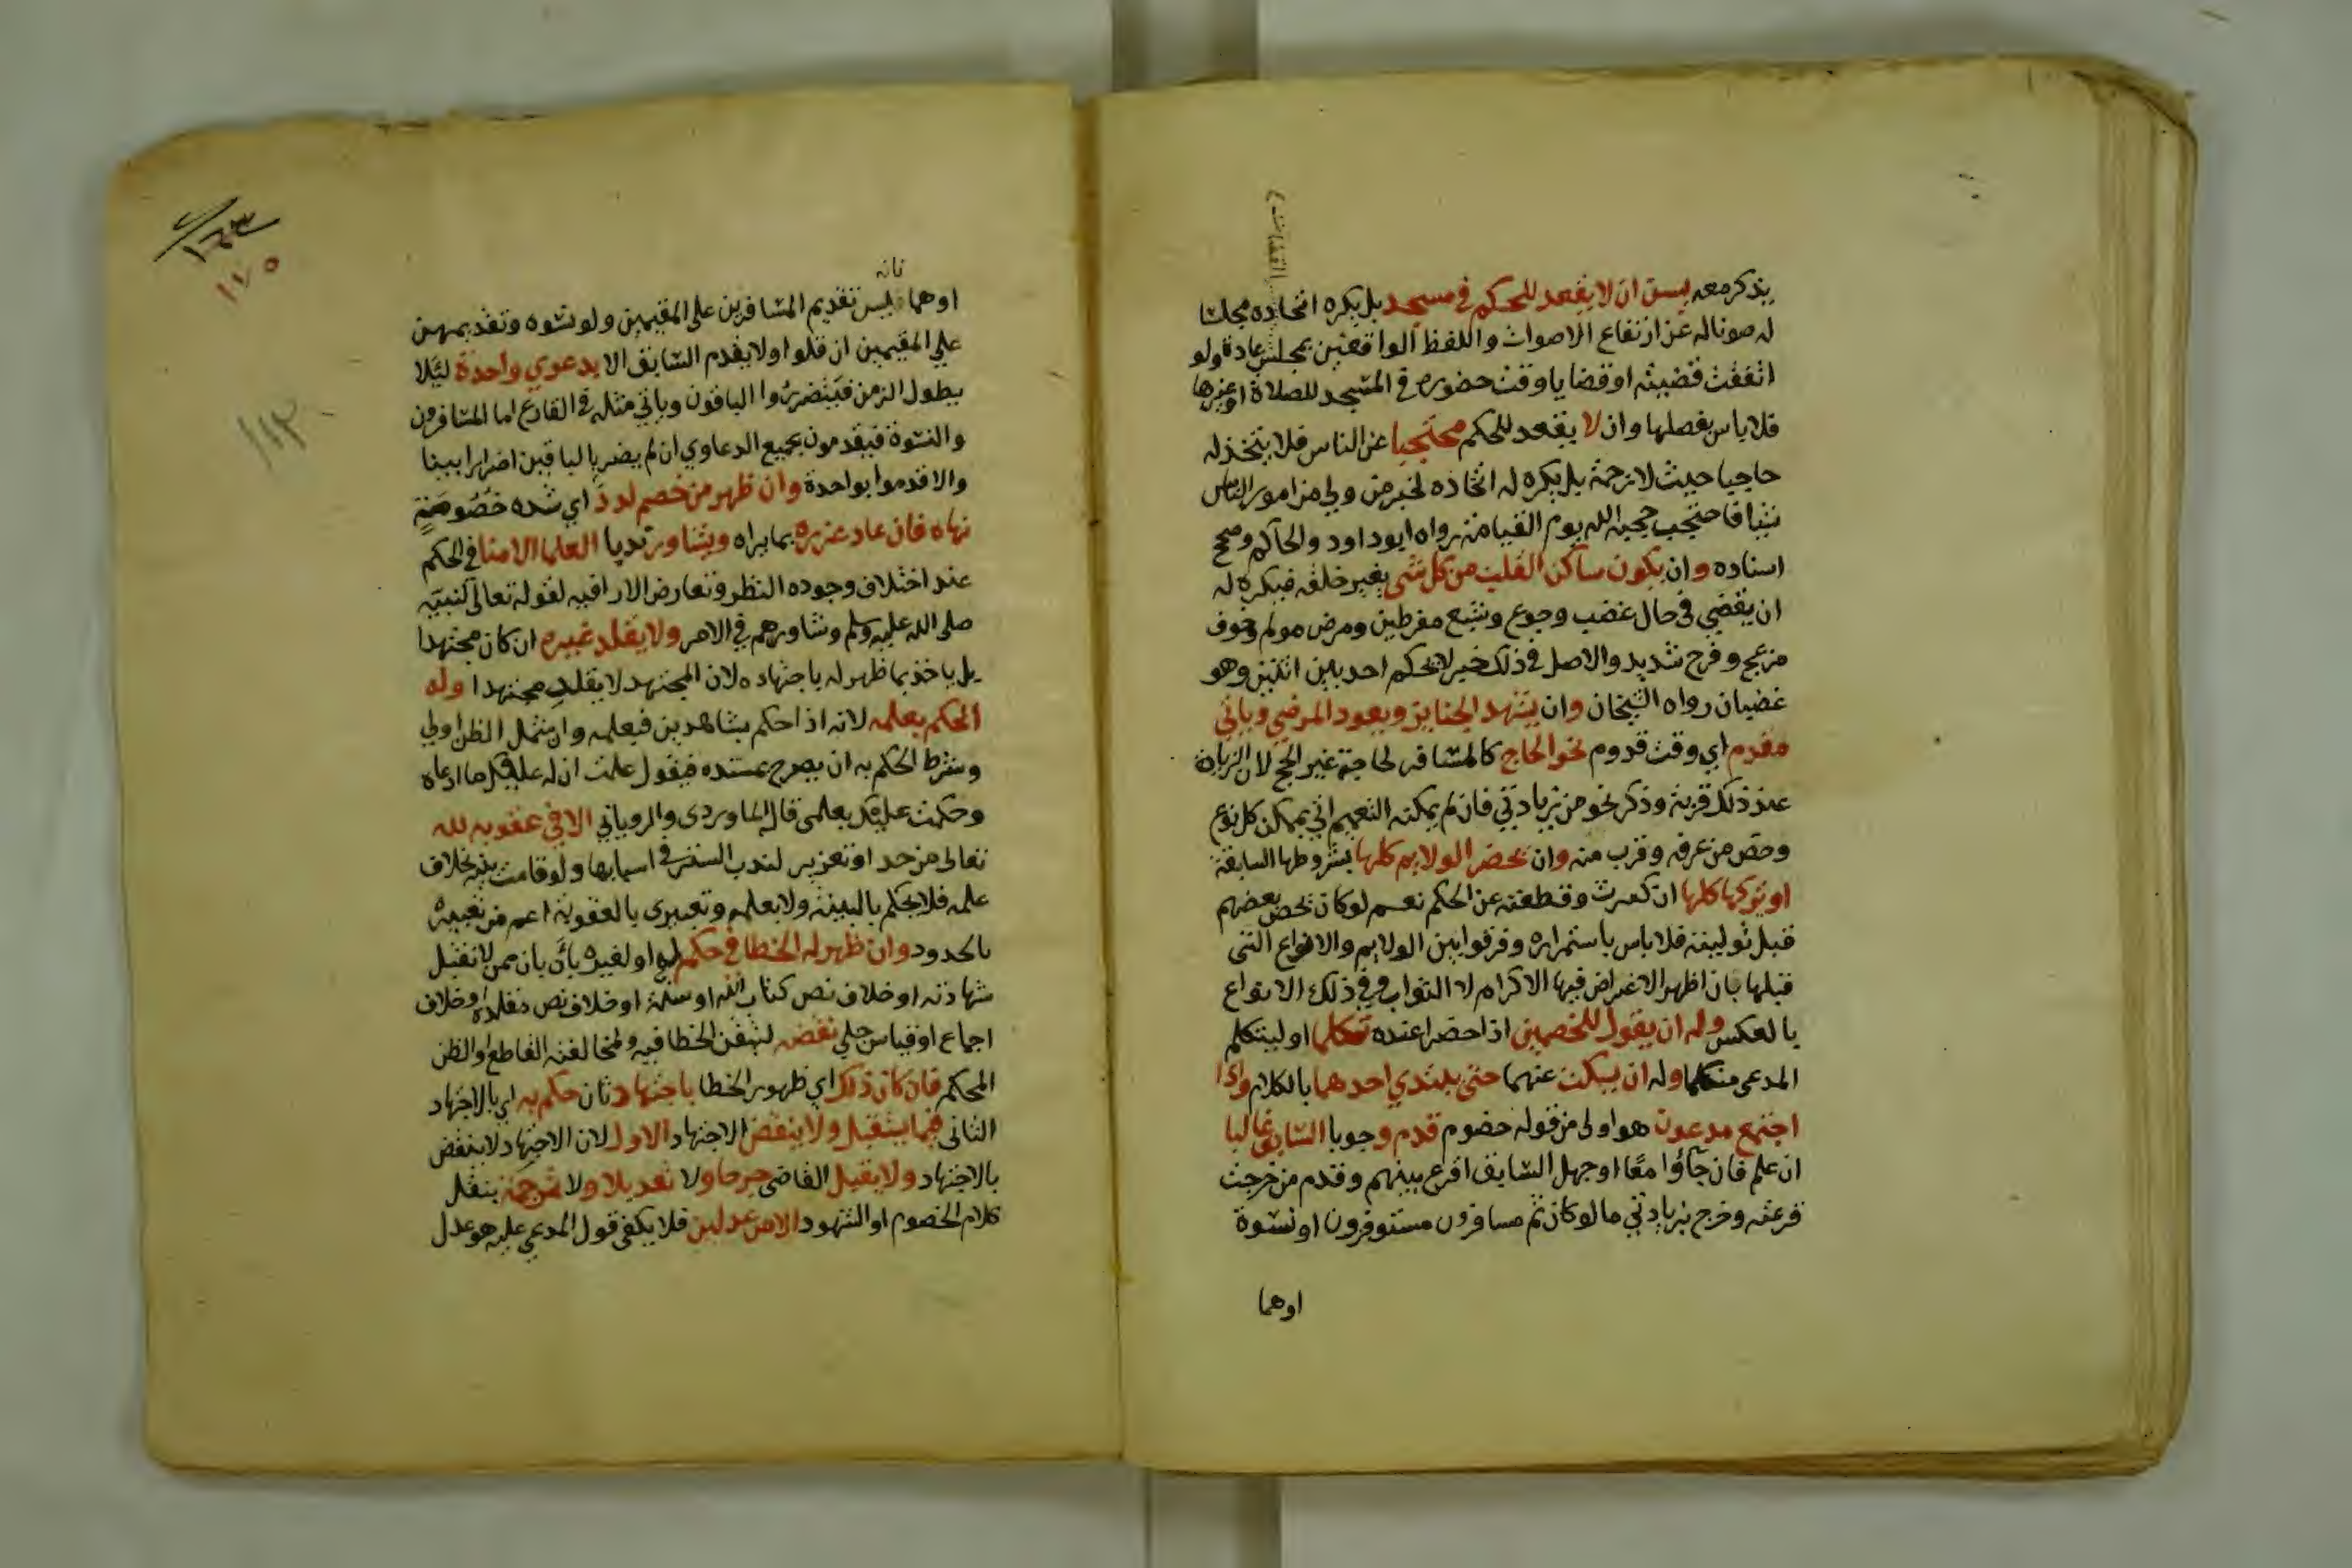 يذكر معه ليسن ان لا يقعد للحكم في مسجد بل يكره اتخاذه مجلسا
له صونا له عن ارتفاع الاصوات واللفظ الواقعين بمجلس عادة ولو
اتفقت قضيته او قضايا وقت حضوره في المسجد للصلاة او غيرها
فلا باس بفصلها وان لا يقعد للحكم محتجبا عن الناس فلا يتخذ له
حاجبا حيث لا زحمة بل يكره له اتخاذه لخبر من ولي من امور الناس
شيا فاحتجب حجبه الله يوم القيامة رواه ابو داود والحاكم وصحح
اسناده وان يكون ساكن القلب من كل شي يغير خلقه فيكره له
ان يقضي في حال غضب وجوع وشبع مفرطين ومرض مولم وخوف
مزعج وفرح شديد والاصل في ذلك خبر لا يحكم احد بين اثنين وهو
غضبان رواه الشيخان وان يشهد الجنايز ويعود المرضي وياتي
مقدم اي وقت قدوم نحو الحاج كالمسافر لحاجة غير الحج لان الزيارة
عند ذلك قربة وذكر نحو من زيادتي فان لم يمكنه التعميم اتي بممكن كل نوع
وخص من عرفه وقرب منه وان يحضر الولايم كلها بشروطها السابقة
او يتركها كلها ان كثرت وقطعته عن الحكم نعم لو كان يخص بعضهم
قبل توليته فلا باس باستمراره وفرقوا بين الولايم والانواع التي
قبلها بان اظهر الاغراض فيها الاكرام لا الثواب وفي ذلك الانواع
بالعكس وله ان يقول للخصمين اذا حضرا عنده تكلما او ليتكلم
المدعي منكما وله ان يسكت عنهما حتي يبتدي احدهما بالكلام واذا
اجتمع مدعون هو اولى من قوله خصوم قدم وجوبا السابق غالبا
ان علم فان جاؤا معا او جهل السابق اقرع بينهم وقدم من خرجت
قرعته وخرج بزيادتي ما لو كان ثم مسافرون مستوفزون او نسوة
اوهما
١١٧٥
١١٣
اوهما فليس تقديم المسافرين علي المقيمين ولو نسوه وتقديمهن
علي المقيمين ان قلوا ولا يقدم السابق الا بدعوي واحدة ليلا
يطول الزمن فيتضرروا الباقون وياتي مثله في القارع اما المسافرون
والنسوة فيقدمون بجميع الدعاوي ان لم يضر بالباقين اضرارا بينا
والا قدموا بواحدة وان ظهر من خصم لدد اي شده خصومة
نهاه فان عاد عزره بما يراه ويشاور ندبا العلما الامنا في الحكم
عند اختلاف وجوده النظر وتعارض الارا فيه لقوله تعالى لنبيه
صلى الله عليه وسلم وشاورهم في الامر ولا يقلد غيره ان كان مجتهدا
بل ياخذ بما ظهر له باجتهاده لان المجتهد لا يقلد مجتهدا وله
الحكم بعلمه لانه اذا حكم بشاهدين فبعلمه وان شمل الظن اولي
وشرط الحكم به ان يصرح بمستنده فيقول علمت ان له عليك ما ادعاه
وحكمت عليك بعلمي قاله الماوردي والروياني الا في عقوبه لله
تعالى من حد او تعزير لندب الستر في اسبابها ولو قامت بينه بخلاف
علمه فلا يحكم بالبينه ولا بعلمه وتعبيري بالعقوبة اعم من تعبيره
بالحدود وان ظهر له الخطا في حكم له او لغيره بان بان ممن لا تقبل
شهادته او خلاف نص كتاب الله او سنة او خلاف نص مقلده او خلاف
اجماع او قياس جلي نقضه لتيقن الخطا فيه ولمخالفته القاطع او الظن
المحكم فان كان ذلك اي ظهور الخطا باجتهاد ثان حكم به اي بالاجتهاد
الثاني فيما يستقبل ولا ينقض الاجتهاد الاول لان الاجتهاد لا ينقض
بالاجتهاد ولا يقبل القاضي جرحا ولا تعديلا ولا ترجمة بنقل
كلام الخصوم او الشهود الا من عدلين فلا يكفي قول المدعي عليه هو عدل